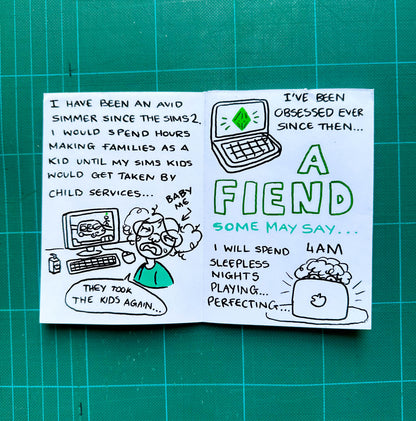 I HAVE BEEN AN AVID
SIMMER SINCE THE SIMS 2.
I WOULD SPEND HOURS
MAKING FAMILIES AS A
KID UNTIL MY SIMS KIDS
WOULD GET TAKEN BY
CHILD SERVICES...
BABY
ME
THEY TOOK
THE KIDS AGAIN...
I'VE BEEN
OBSESSED EVER
SINCE THEN...
A
FIEND
SOME MAY SAY...
I WILL SPEND
SLEEPLESS
NIGHTS
PLAYING...
PERFECTING...
4AM